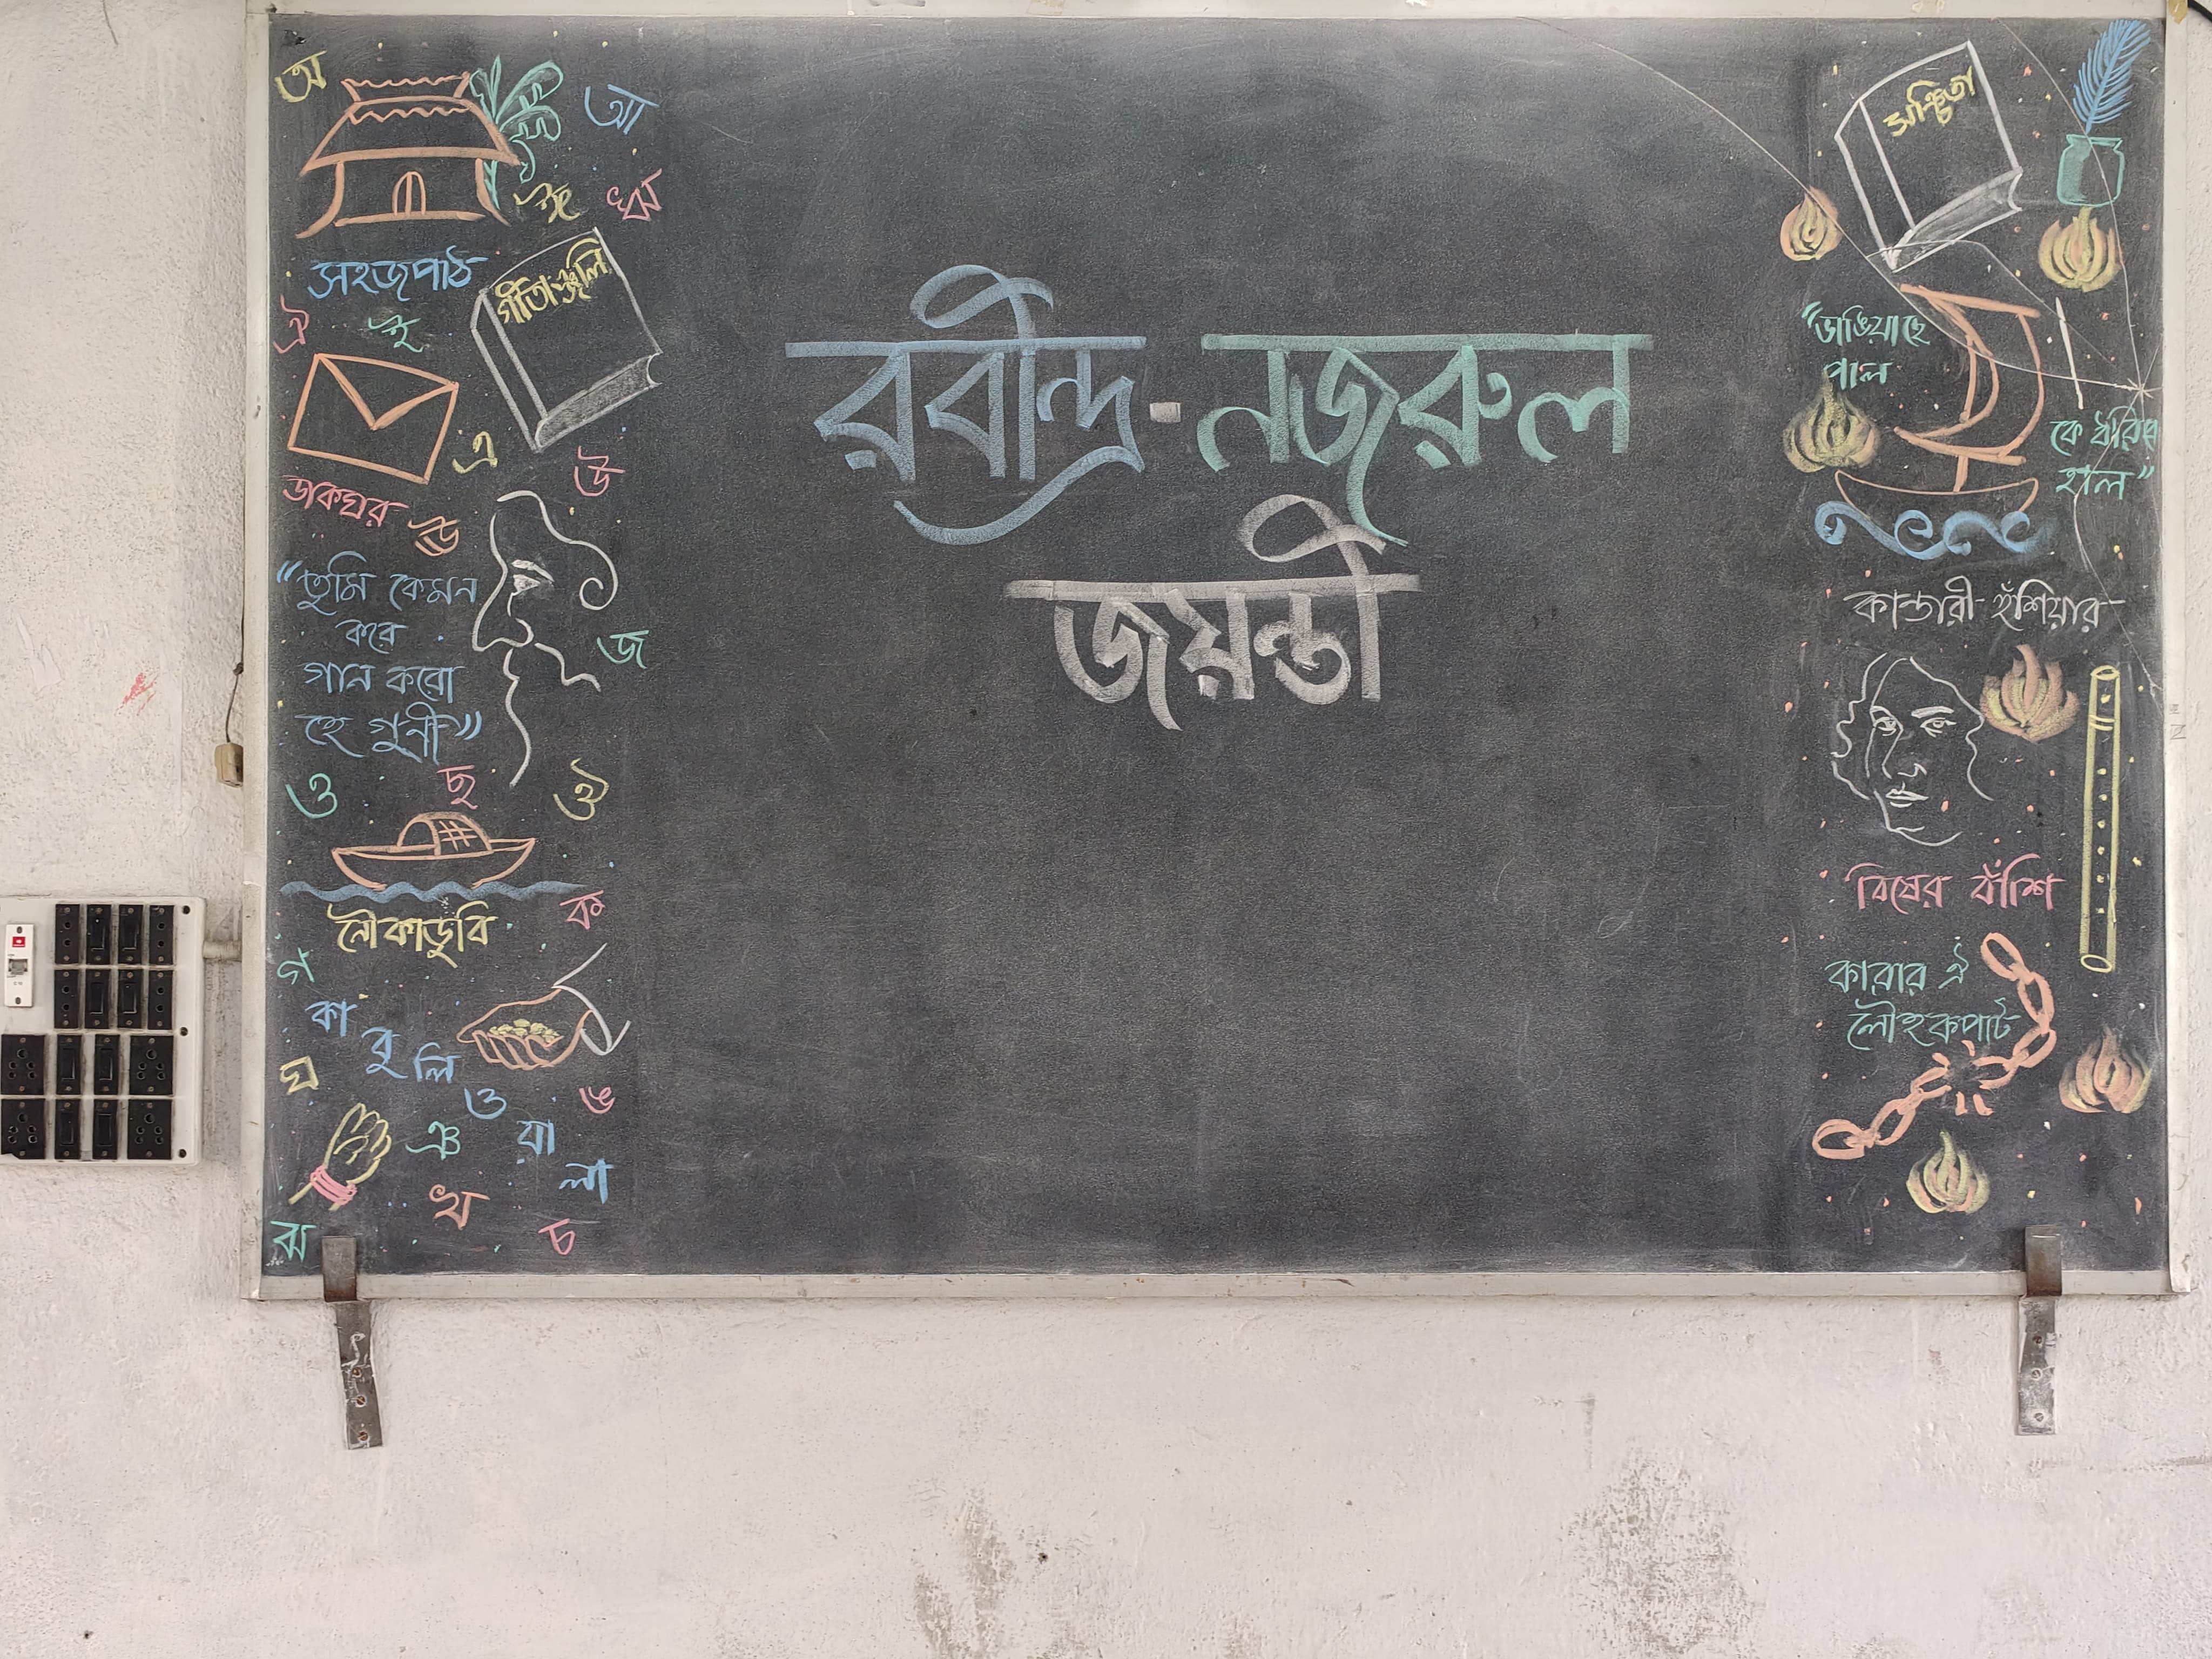 রবীন্দ্র-নজরুল
জয়ন্তী
অ
আ
ঈ
ঋ
সহজপাঠ
গীতাঞ্জলি
ঐ
ই
এ
উ
ডাকঘর
ঊ
"তুমি কেমন
করে
গান করো
হে গুনী"
জ
ও
ছ
ঔ
নৌকাডুবি
ক
গ
কা
বু
লি
ও
য়া
লা
ঘ
ঙ
ঞ
খ
ঝ
চ
সঞ্চিতা
"ডাঙিয়াছে
পাল
কে ধরিবে
হাল"
কান্ডারী হুঁশিয়ার
বিষের বাঁশি
কারার ঐ
লৌহকপাট